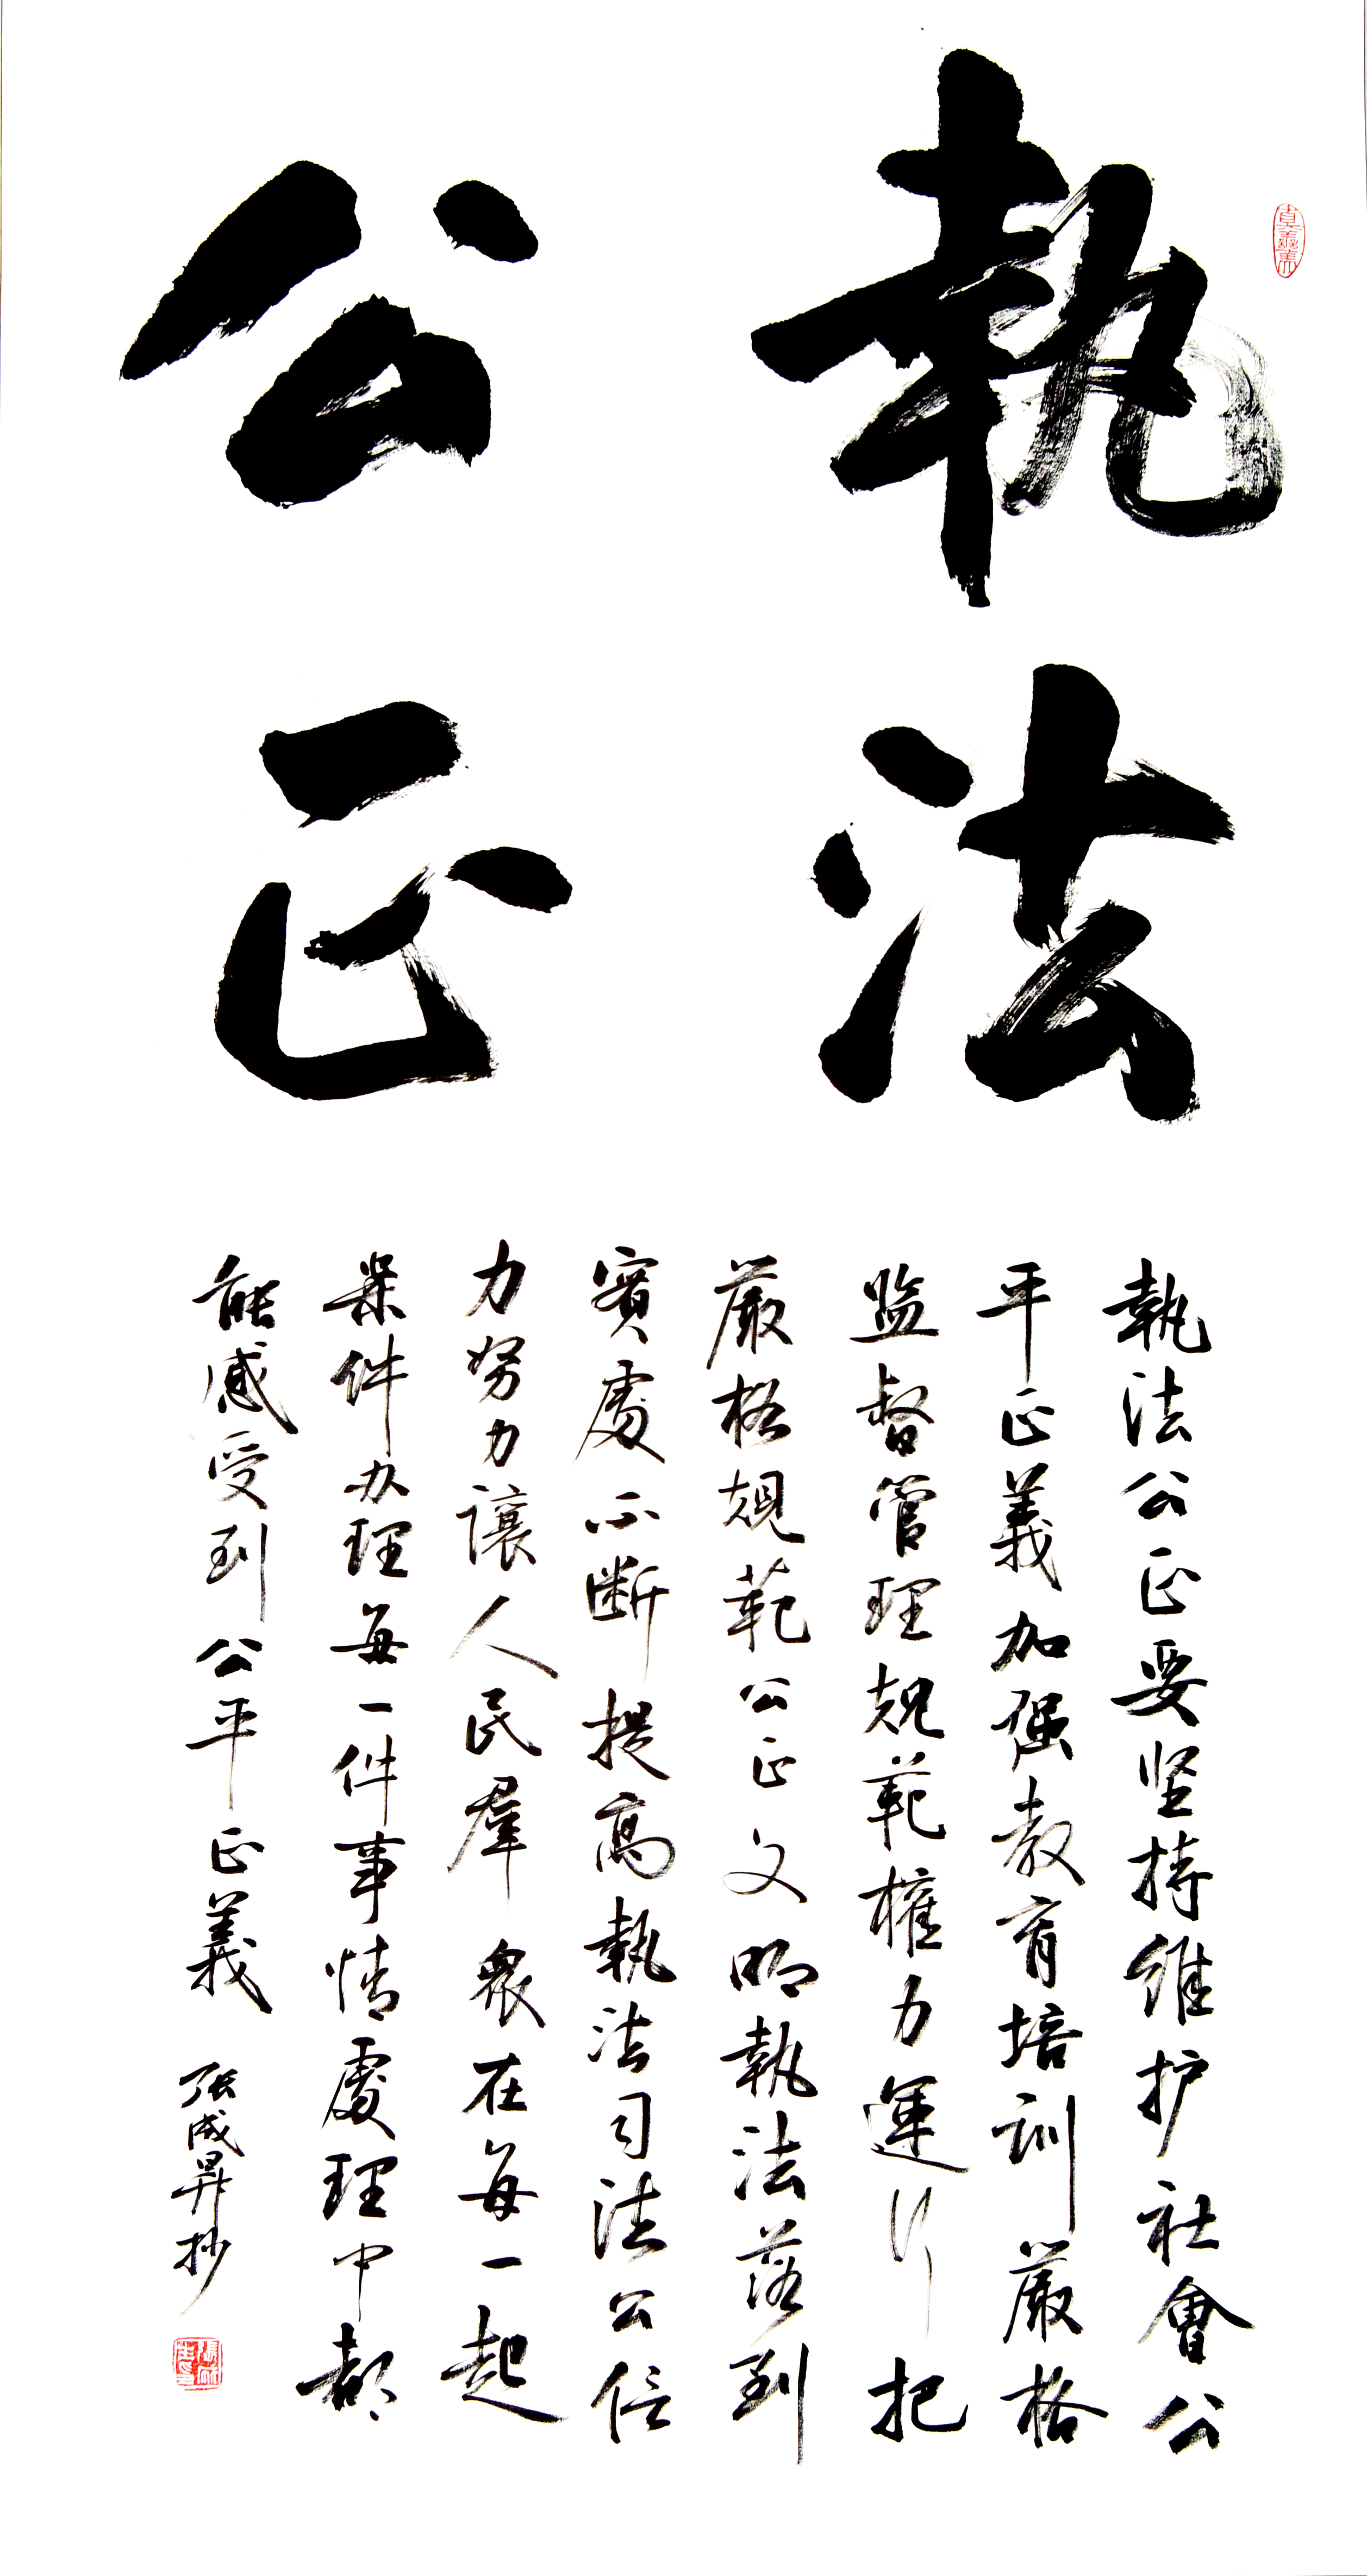 執法
公正
執法公正要坚持维护社會公
平正義加强教育培训嚴格
监督管理規範權力運行把
嚴格規範公正文明執法落到
實處不断提高執法司法公信
力努力讓人民羣衆在每一起
案件办理每一件事情處理中都
能感受到公平正義
张成昇抄
真善美